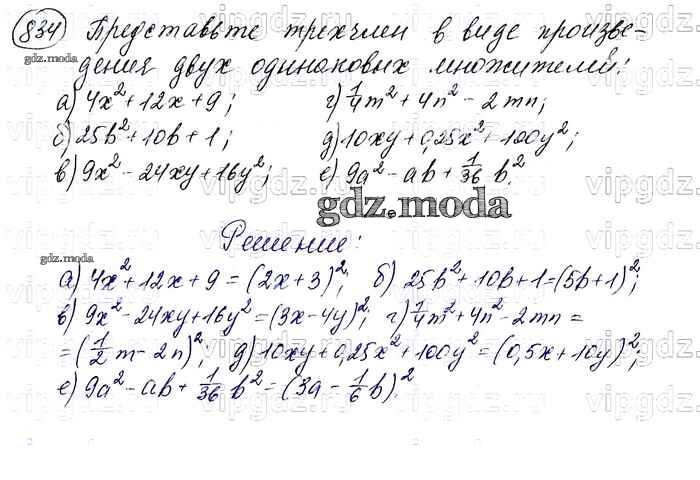 834 Представьте трехчлен в виде произве-
gdz.moda дения двух одинаковых множителей:
а) 4x² + 12x + 9; г) 1/4 m² + 4n² - 2mn;
б) 25b² + 10b + 1; д) 10xy + 0,25x² + 100y²;
в) 9x² - 24xy + 16y²; е) 9a² - ab + 1/36 b².
gdz.moda
Решение:
gdz.moda
а) 4x² + 12x + 9 = (2x + 3)²; б) 25b² + 10b + 1 = (5b + 1)²;
в) 9x² - 24xy + 16y² = (3x - 4y)²; г) 1/4 m² + 4n² - 2mn =
= (1/2 m - 2n)²; д) 10xy + 0,25x² + 100y² = (0,5x + 10y)²;
е) 9a² - ab + 1/36 b² = (3a - 1/6 b)².
vipgdz